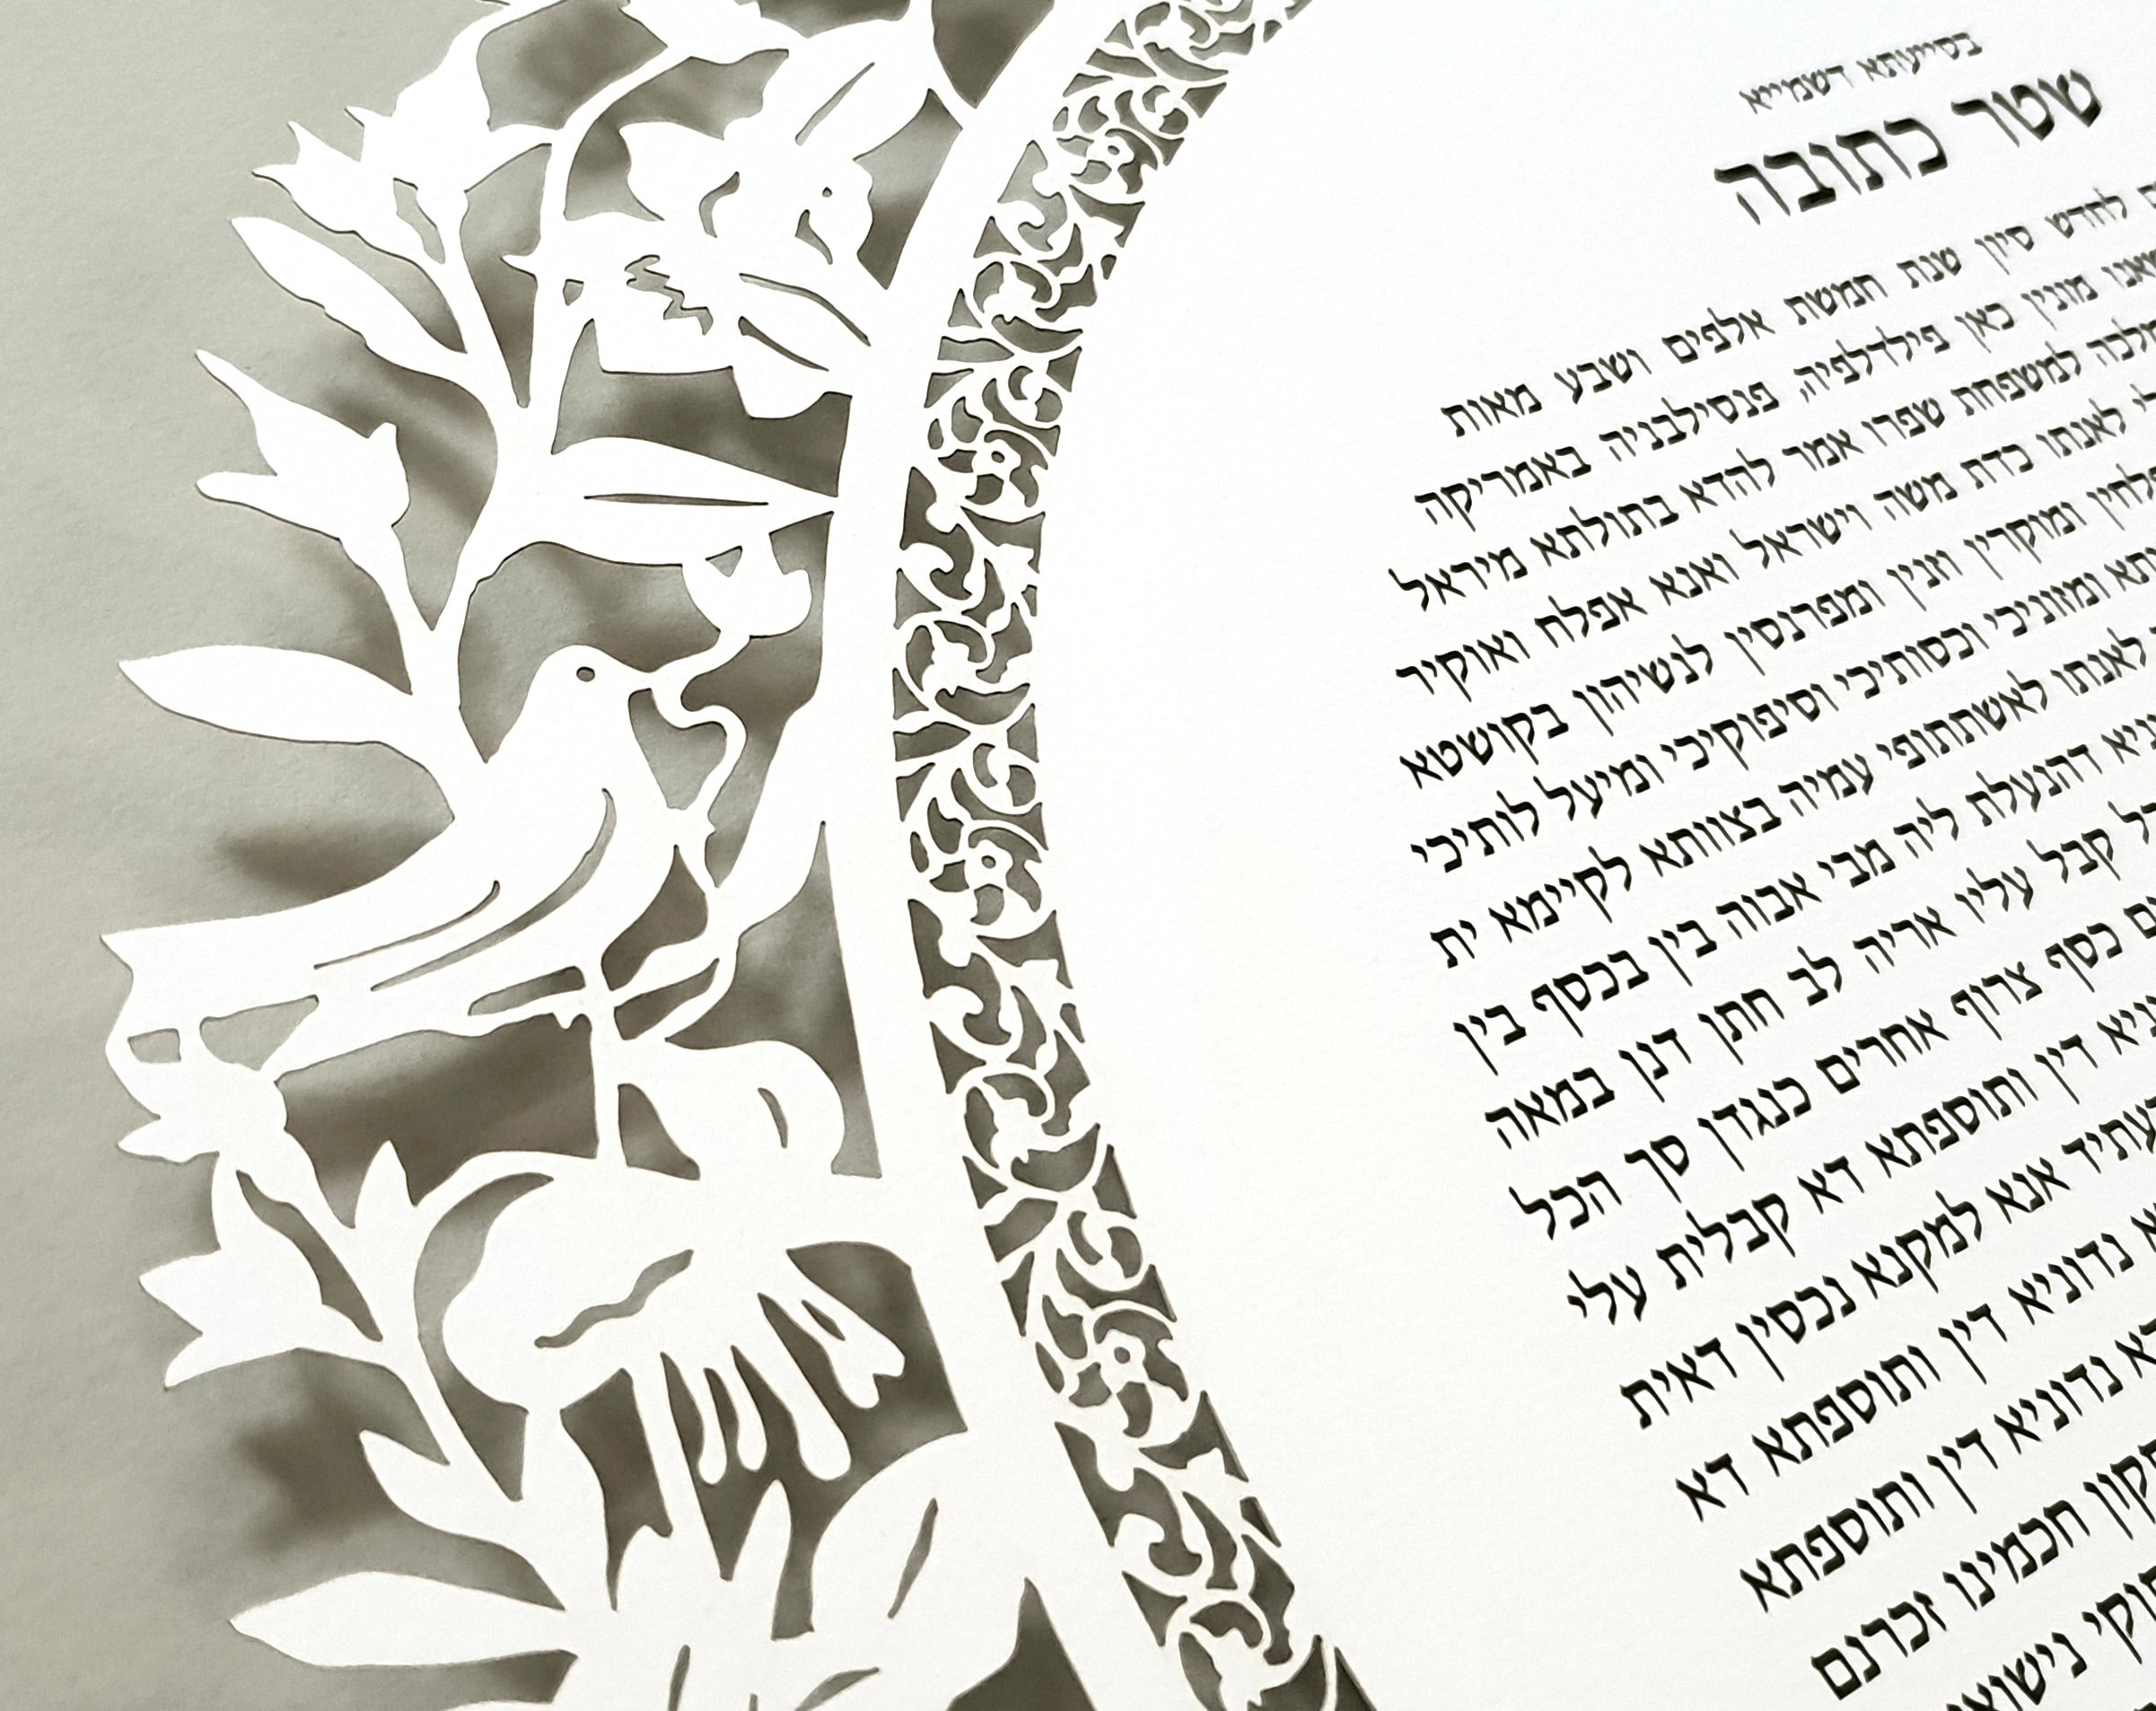 בסייעתא דשמייא
שטר כתובה
לחדש סיון שנת חמשת אלפים ושבע מאות
שאנו מונין כאן פילדלפיה, פנסילבניה באמריקה
מלכה למשפחת שפרו אמר להדא בתולתא מיראל
לי לאנתו כדת משה וישראל ואנא אפלח ואוקיר
פלחין ומוקרין וזנין ומפרנסין לנשיהון בקושטא
ומזוניכי וכסותיכי וסיפוקיכי ומיעל לותיכי
לאנתו לאשתתופי עמיה בצוותא לקיימא ית
דהנעלת ליה מבי אבוה בין בכסף בין
קבל עליו אריה לב חתן דנן במאה
כסף צרוף אחרים כנגדן סך הכל
דין ותוספתא דא קבלית עלי
אנא למקנא נכסין דאית
נדוניא דין ותוספתא דא
נדוניא דין ותוספתא
חכמינו זכרנם